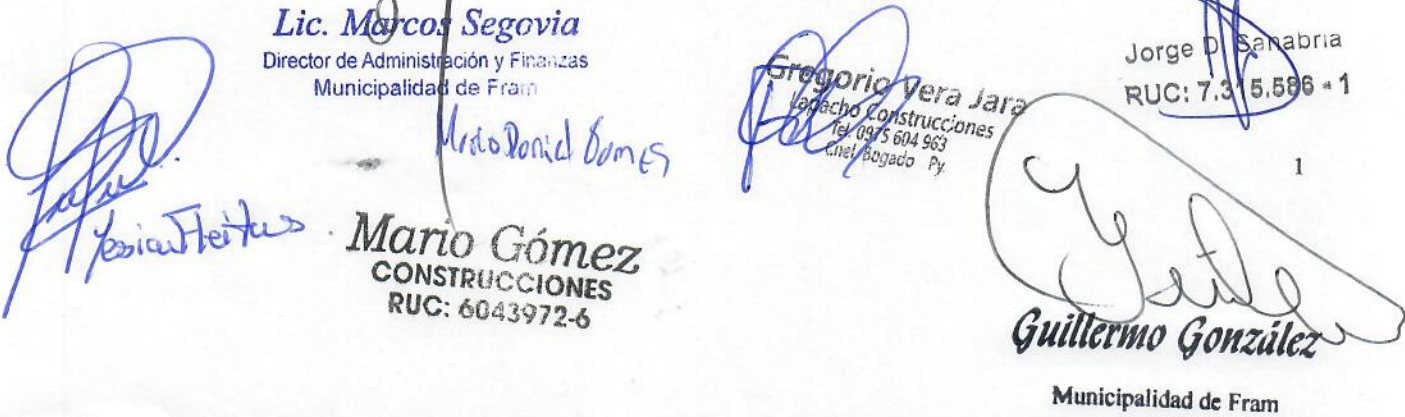 Lic. Marcos Segovia
Director de Administración y Finanzas
Municipalidad de Fram
Mario Daniel Gomez
Yessica Fleitas
Mario Gómez
CONSTRUCCIONES
RUC: 6043972-6
Gregorio Vera Jara
Lapacho Construcciones
Tel. 0975 604 963
Cnel. Bogado Py.
Jorge D. Sanabria
RUC: 7.315.586-1
1
Guillermo González
Municipalidad de Fram